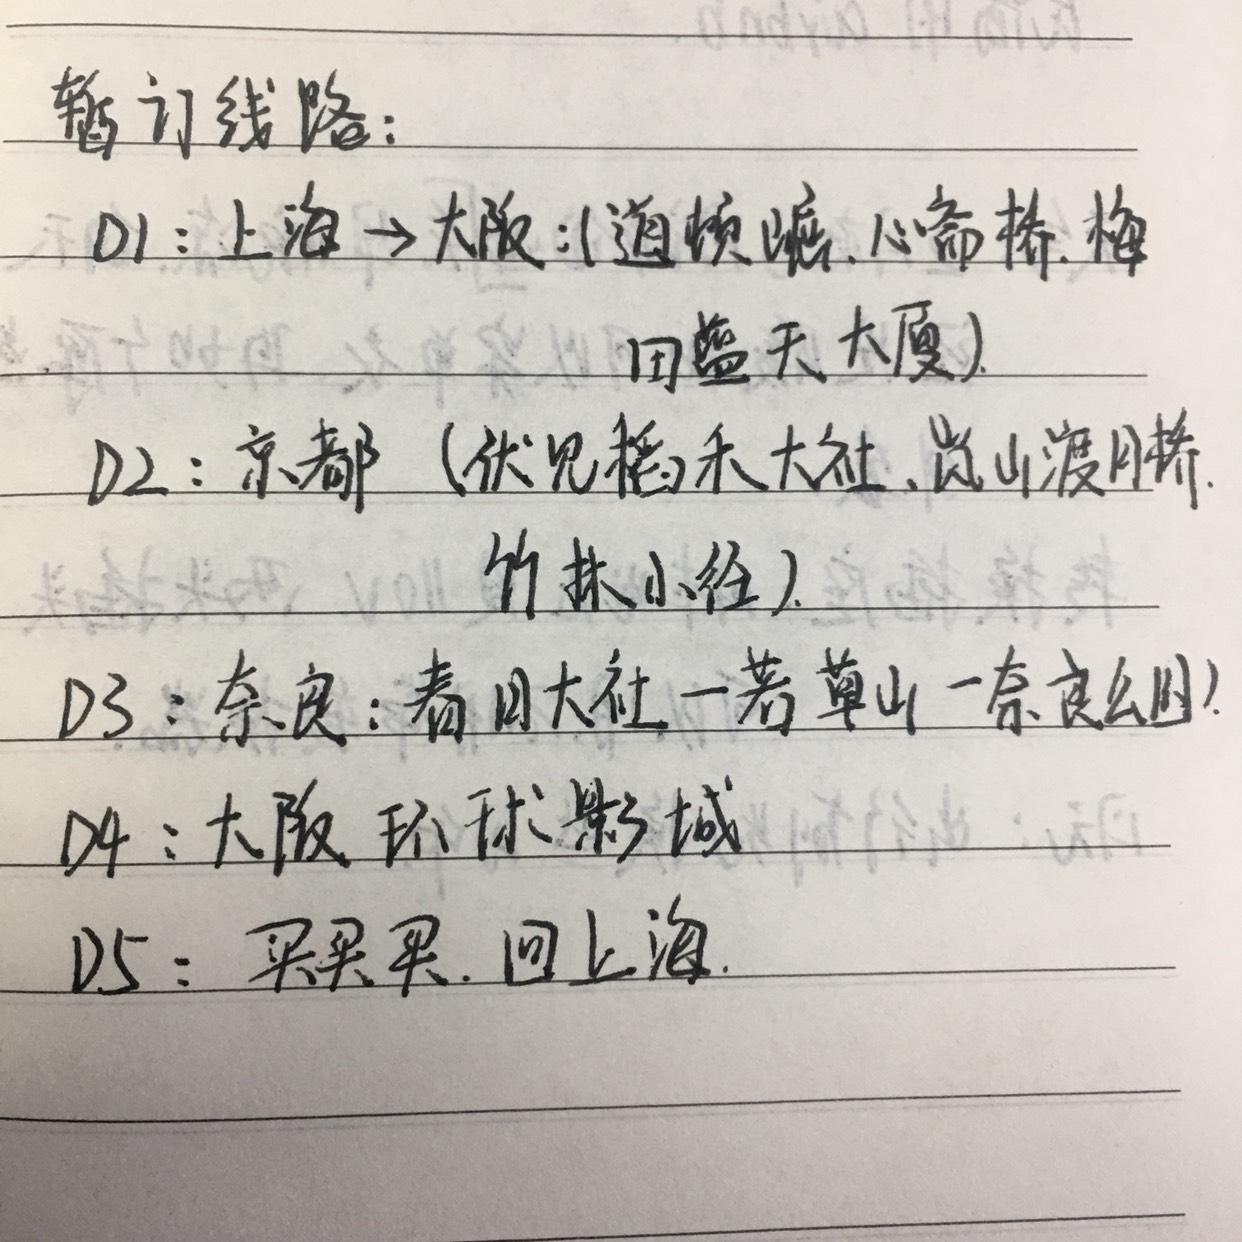 暂订线路:
D1:上海→大阪:(道顿堀、心斋桥、梅
田蓝天大厦).
D2:京都(伏见稻禾大社、岚山渡月桥、
竹林小径).
D3:奈良:春日大社—若草山—奈良公园).
D4:大阪环球影城
D5:买买买.回上海.